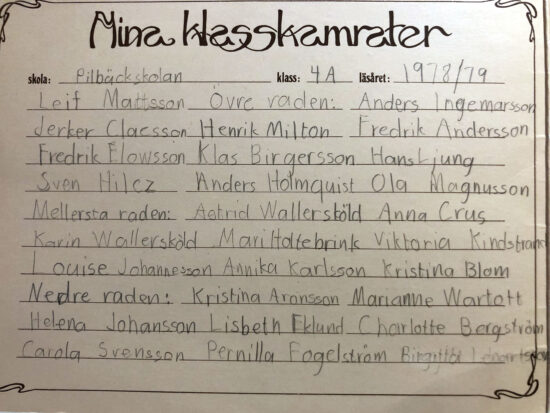 Mina klasskamrater
skola: Pilbäckskolan klass: 4A läsåret: 1978/79
Leif Mattsson Övre raden: Anders Ingemarsson
Jerker Claesson Henrik Milton Fredrik Andersson
Fredrik Elowsson Klas Birgersson Hans Ljung
Sven Hilcz Anders Holmquist Ola Magnusson
Mellersta raden: Astrid Wallersköld Anna Crus
Karin Wallersköld Mari Holtebrink Viktoria Kindstrand
Louise Johannesson Annika Karlsson Kristina Blom
Nedre raden: Kristina Aronsson Marianne Wartott
Helena Johansson Lisbeth Eklund Charlotte Bergström
Carola Svensson Pernilla Fogelström